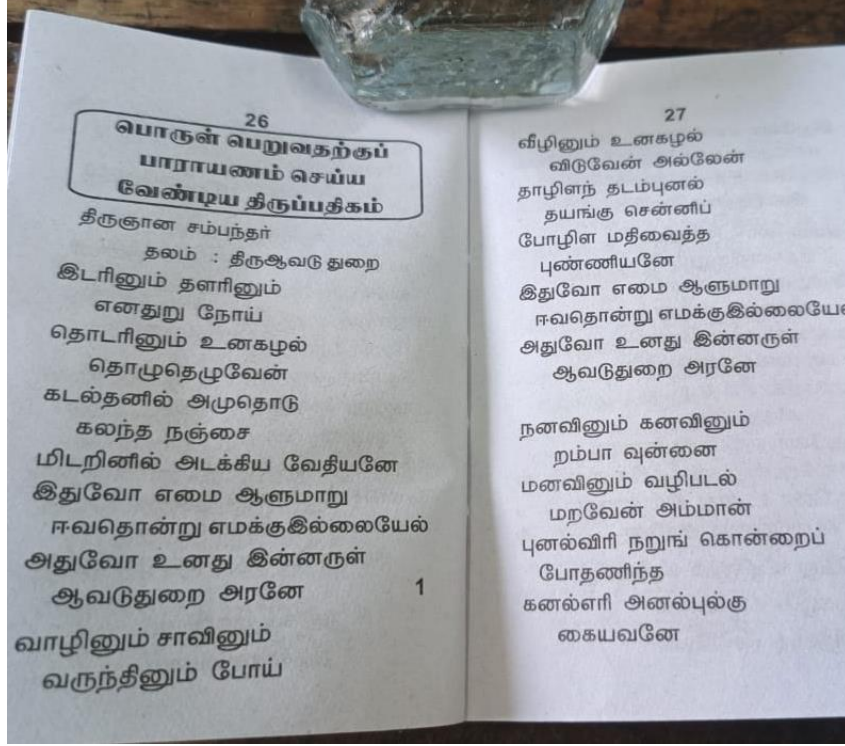 26
பொருள் பெறுவதற்குப்
பாராயணம் செய்ய
வேண்டிய திருப்பதிகம்
திருஞான சம்பந்தர்
தலம் : திருஆவடு துறை
இடரினும் தளரினும்
எனதுறு நோய்
தொடரினும் உனகழல்
தொழுதெழுவேன்
கடல்தனில் அமுதொடு
கலந்த நஞ்சை
மிடறினில் அடக்கிய வேதியனே
இதுவோ எமை ஆளுமாறு
ஈவதொன்று எமக்குஇல்லையேல்
அதுவோ உனது இன்னருள்
ஆவடுதுறை அரனே 1
வாழினும் சாவினும்
வருந்தினும் போய்
27
வீழினும் உனகழல்
விடுவேன் அல்லேன்
தாழிளந் தடம்புனல்
தயங்கு சென்னிப்
போழிள மதிவைத்த
புண்ணியனே
இதுவோ எமை ஆளுமாறு
ஈவதொன்று எமக்குஇல்லையே
அதுவோ உனது இன்னருள்
ஆவடுதுறை அரனே
நனவினும் கனவினும்
றம்பா வுன்னை
மனவினும் வழிபடல்
மறவேன் அம்மான்
புனல்விரி நறுங் கொன்றைப்
போதணிந்த
கனல்எரி அனல்புல்கு
கையவனே